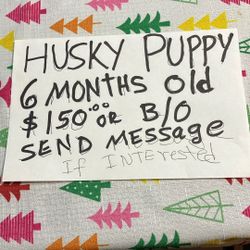 HUSKY PUPPY
6 MONTHS Old
$150.00 OR B/O
SEND MESSAGE
If INTERESTED